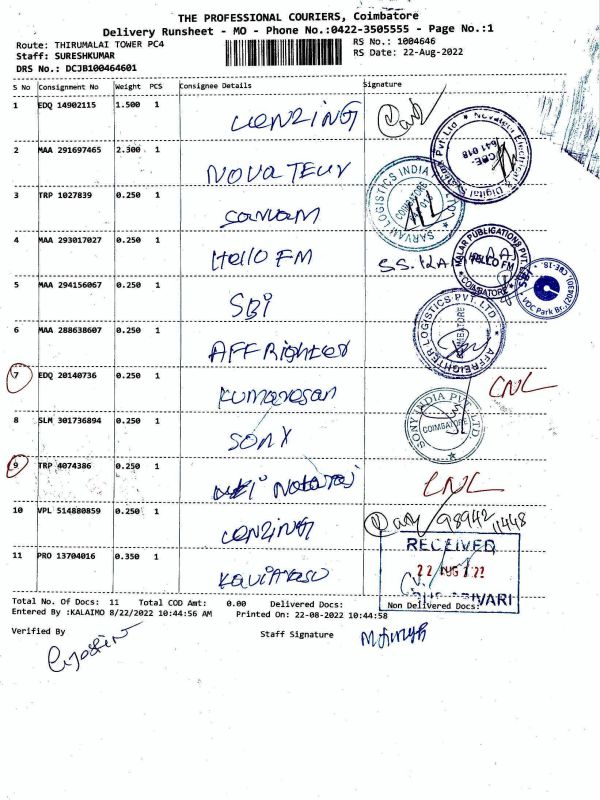 THE PROFESSIONAL COURIERS, Coimbatore
Delivery Runsheet - MO - Phone No.:0422-3505555 - Page No.:1
Route: THIRUMALAI TOWER PC4
RS No.: 1004646
Staff: SURESHKUMAR
RS Date: 22-Aug-2022
DRS No.: DCJB100464601
S No Consignment No Weight PCS Consignee Details Signature
1 EDQ 14902115 1.500 1
2 MAA 291697465 2.300 1 NOVATEUR
3 TRP 1027839 0.250 1 Sarvam
SARVAM LOGISTICS INDIA
COIMBATORE
4 MAA 293017027 0.250 1 Hello FM
MALAR PUBLICATIONS PVT
HELLO FM
COIMBATORE
5 MAA 294156067 0.250 1 SBI
SBI
CBE-18.
VOC Park Br.
6 MAA 288638607 0.250 1 AFFRighter
AFFREIGHTER LOGISTICS PVT LTD
COIMBATORE
7 EDQ 20140736 0.250 1 Kumaresan CNL
8 SLM 301736894 0.250 1 SONY
SONY INDIA PVT. LTD.
COIMBATORE
9 TRP 4074386 0.250 1 CNL
10 VPL 514880859 0.250 1 98942 11448
11 PRO 13704016 0.350 1 Kaviarasu
RECEIVED
22 AUG 22
Total No. Of Docs: 11 Total COD Amt: 0.00 Delivered Docs: Non Delivered Docs:
Entered By :KALAIMO 8/22/2022 10:44:56 AM Printed On: 22-08-2022 10:44:58
Verified By Staff Signature